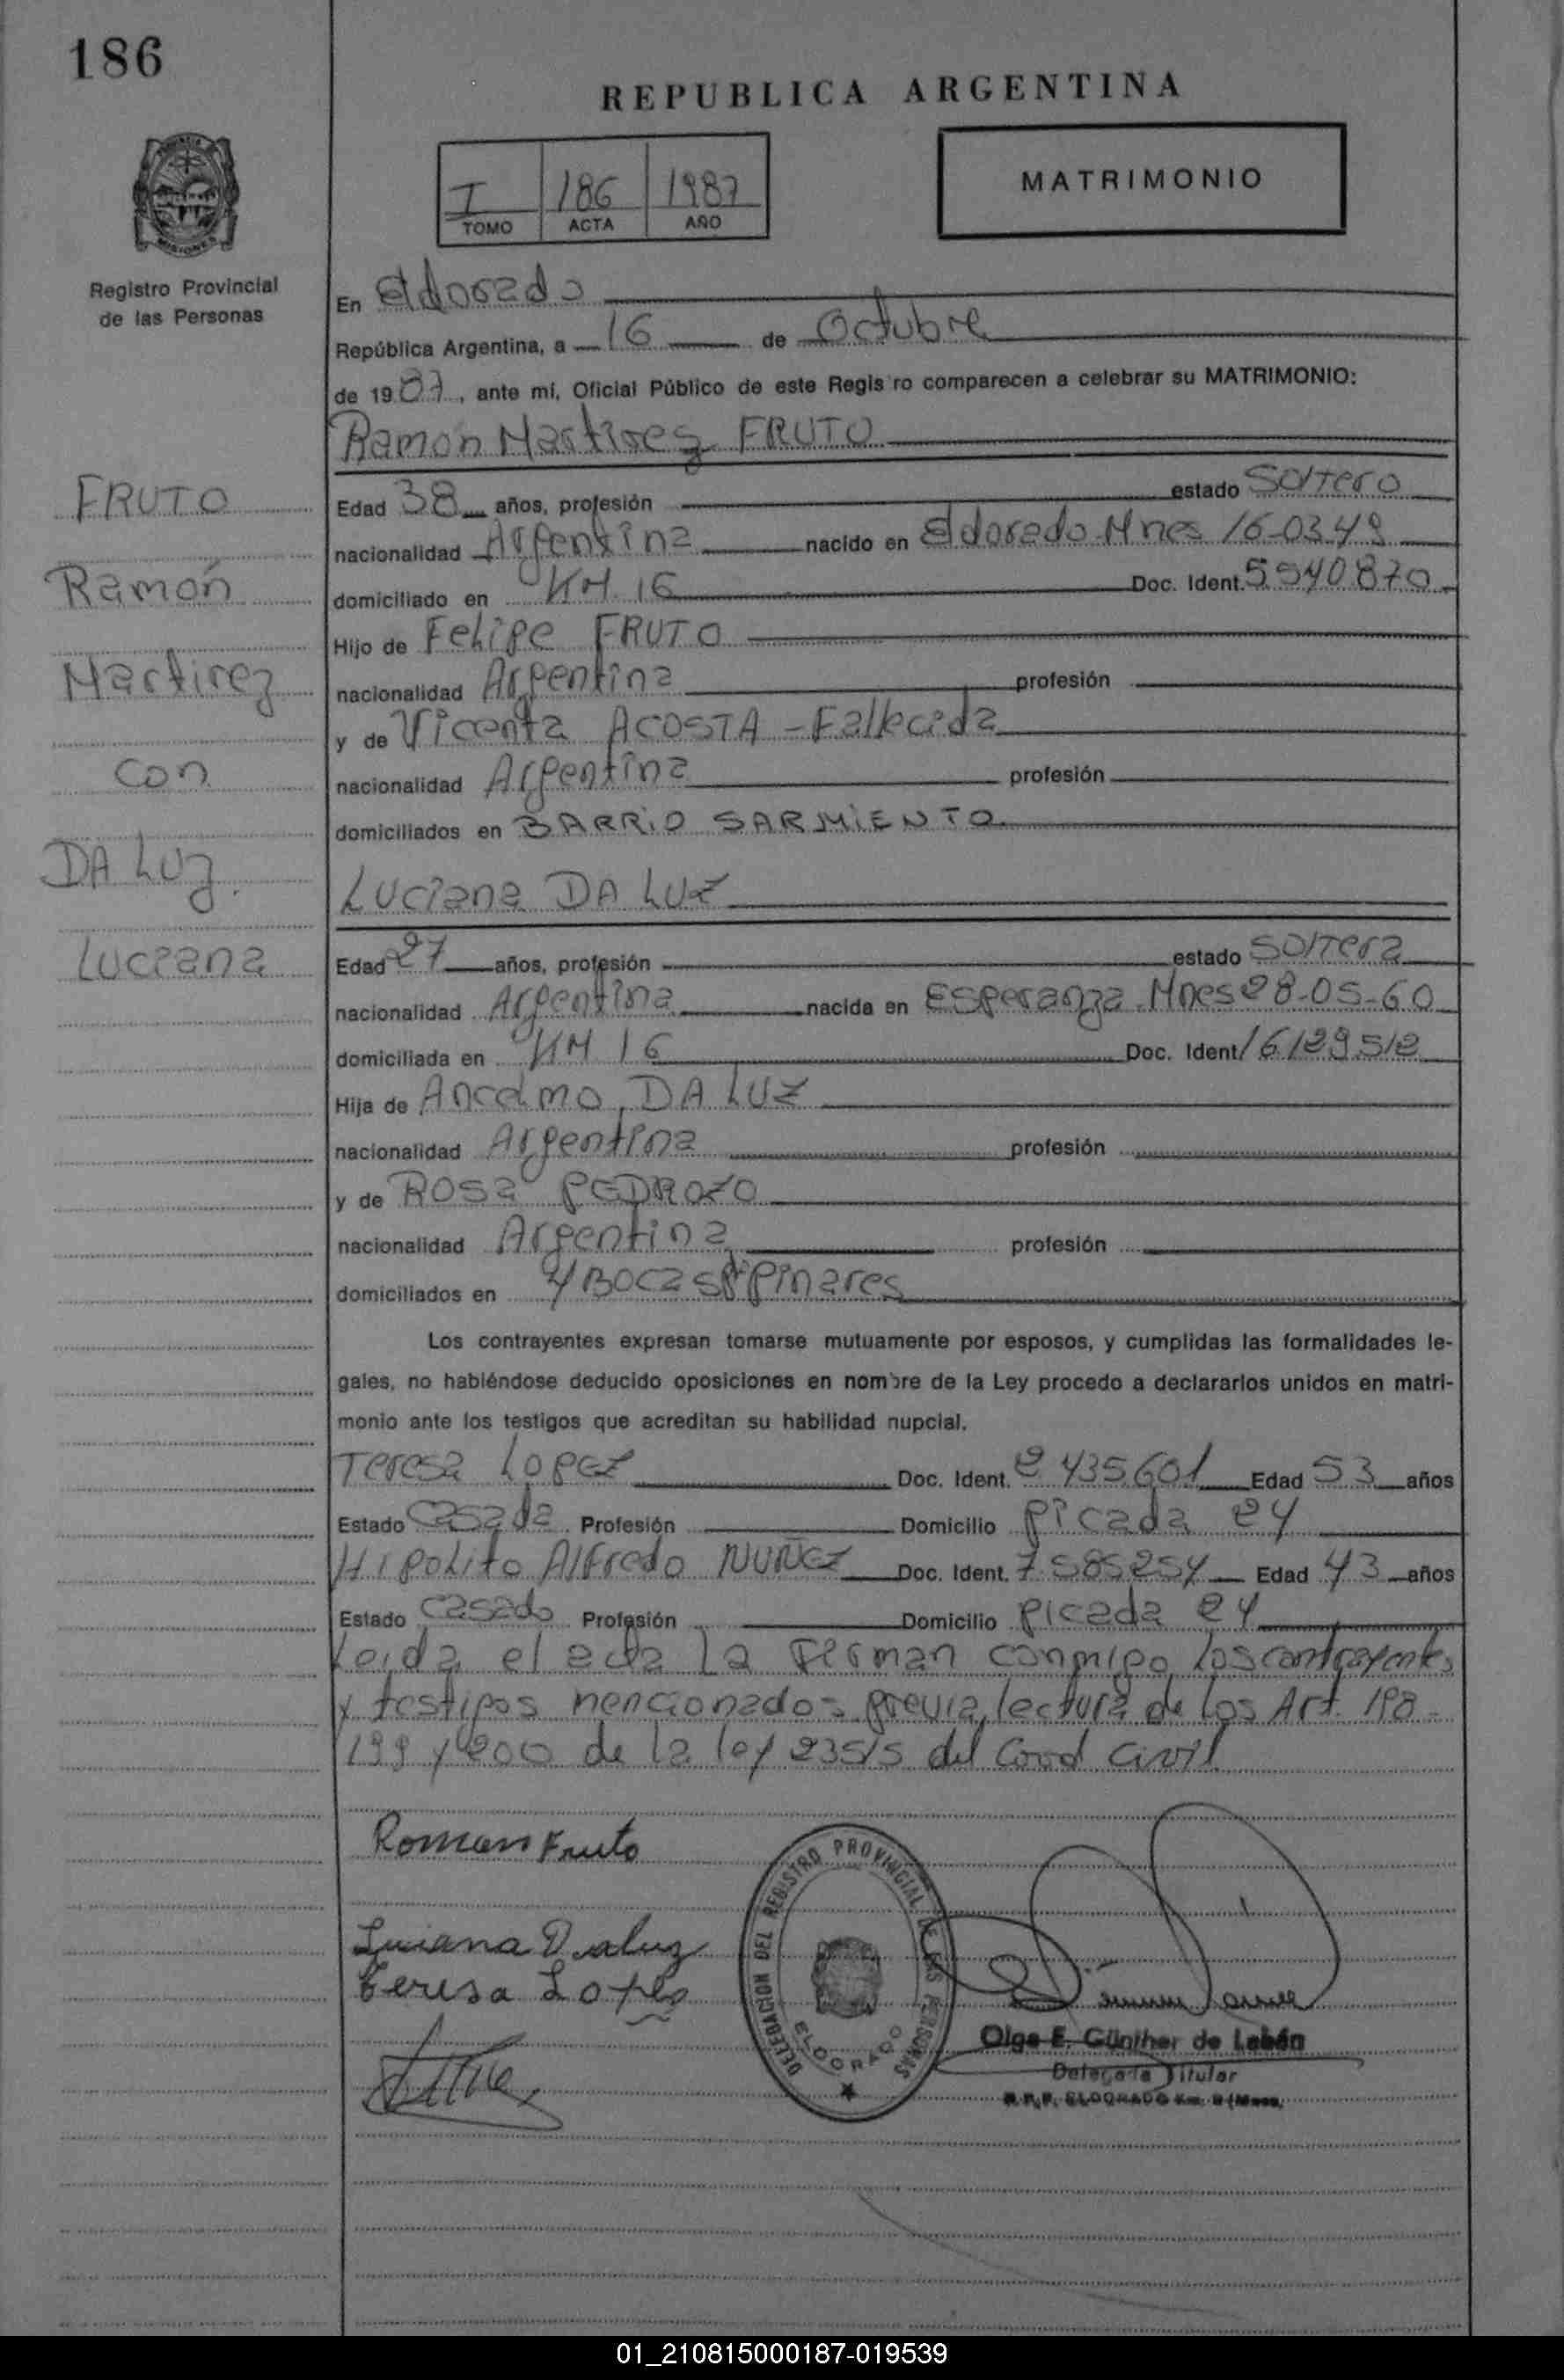 186
REPUBLICA ARGENTINA
I 186 1987
TOMO ACTA AÑO
MATRIMONIO
MISIONES
Registro Provincial
de las Personas
En Eldorado
República Argentina, a 16 de Octubre
de 1987, ante mi, Oficial Público de este Regis ro comparecen a celebrar su MATRIMONIO:
Ramón Martirez FRUTO
FRUTO
Ramón
Martirez
con
DA LUZ.
Luciana
Edad 38 años, profesión estado Soltero
nacionalidad Argentina nacido en Eldorado Mnes 16-03-49
domiciliado en KM. 16 Doc. Ident. 5.940.870
Hijo de Felipe FRUTO
nacionalidad Argentina profesión
y de Vicenta ACOSTA - Fallecida
nacionalidad Argentina profesión
domiciliados en BARRIO SARMIENTO
Luciana DA LUZ
Edad 27 años, profesión estado Soltera
nacionalidad Argentina nacida en Esperanza Mnes 28-05-60
domiciliada en KM 16 Doc. Ident 16129512
Hija de Ancelmo DA LUZ
nacionalidad Argentina profesión
y de Rosa PEDROZO
nacionalidad Argentina profesión
domiciliados en 4 Bocas Pinares
Los contrayentes expresan tomarse mutuamente por esposos, y cumplidas las formalidades le-
gales, no habiéndose deducido oposiciones en nombre de la Ley procedo a declararlos unidos en matri-
monio ante los testigos que acreditan su habilidad nupcial.
Teresa LOPEZ Doc. Ident. 2.435.601 Edad 53 años
Estado Casada Profesión Domicilio picada 24
Hipolito Alfredo NUÑEZ Doc. Ident. 7.585254 Edad 43 años
Estado Casado Profesión Domicilio picada 24
Leida el acta La Firman conmigo los contrayentes
y testigos mencionados previa lectura de los Art. 198-
199 y 200 de la ley 23515 del Cood Civil
Roman Fruto
Luciana Daluz
Teresa Lopes
DELEGACION DEL REGISTRO PROVINCIAL DE LAS PERSONAS
ELDORADO
Olga E. Günther de Labán
Delegada Titular
R.P.P. ELDORADO Km. 9 (Mnes.
01_210815000187-019539